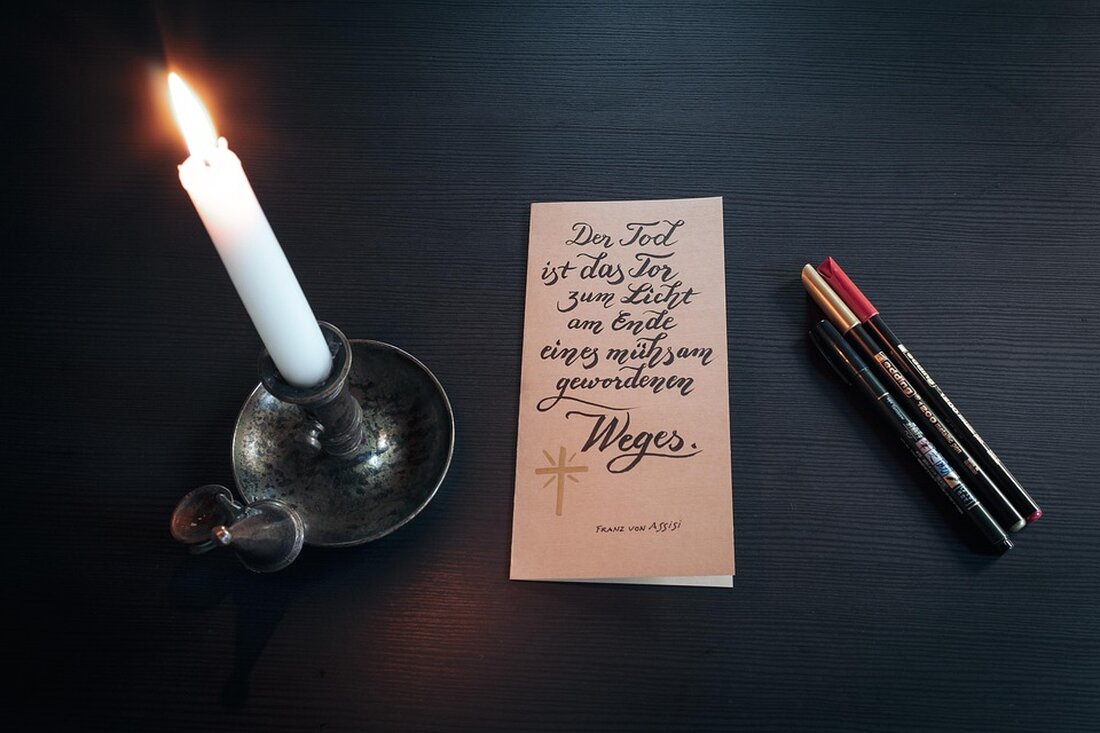 Der Tod
ist das Tor
zum Licht
am Ende
eines mühsam
gewordenen
Weges.
FRANZ VON ASSISI
edding 1200